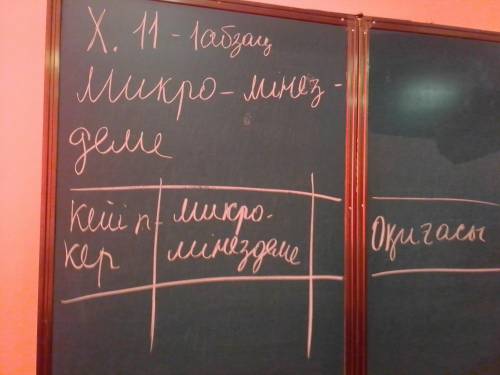 X. 11 - 1абзац
Микро - мінез -
деме
кейіп-
кер
микро-
мінездеме
Оқиғасы